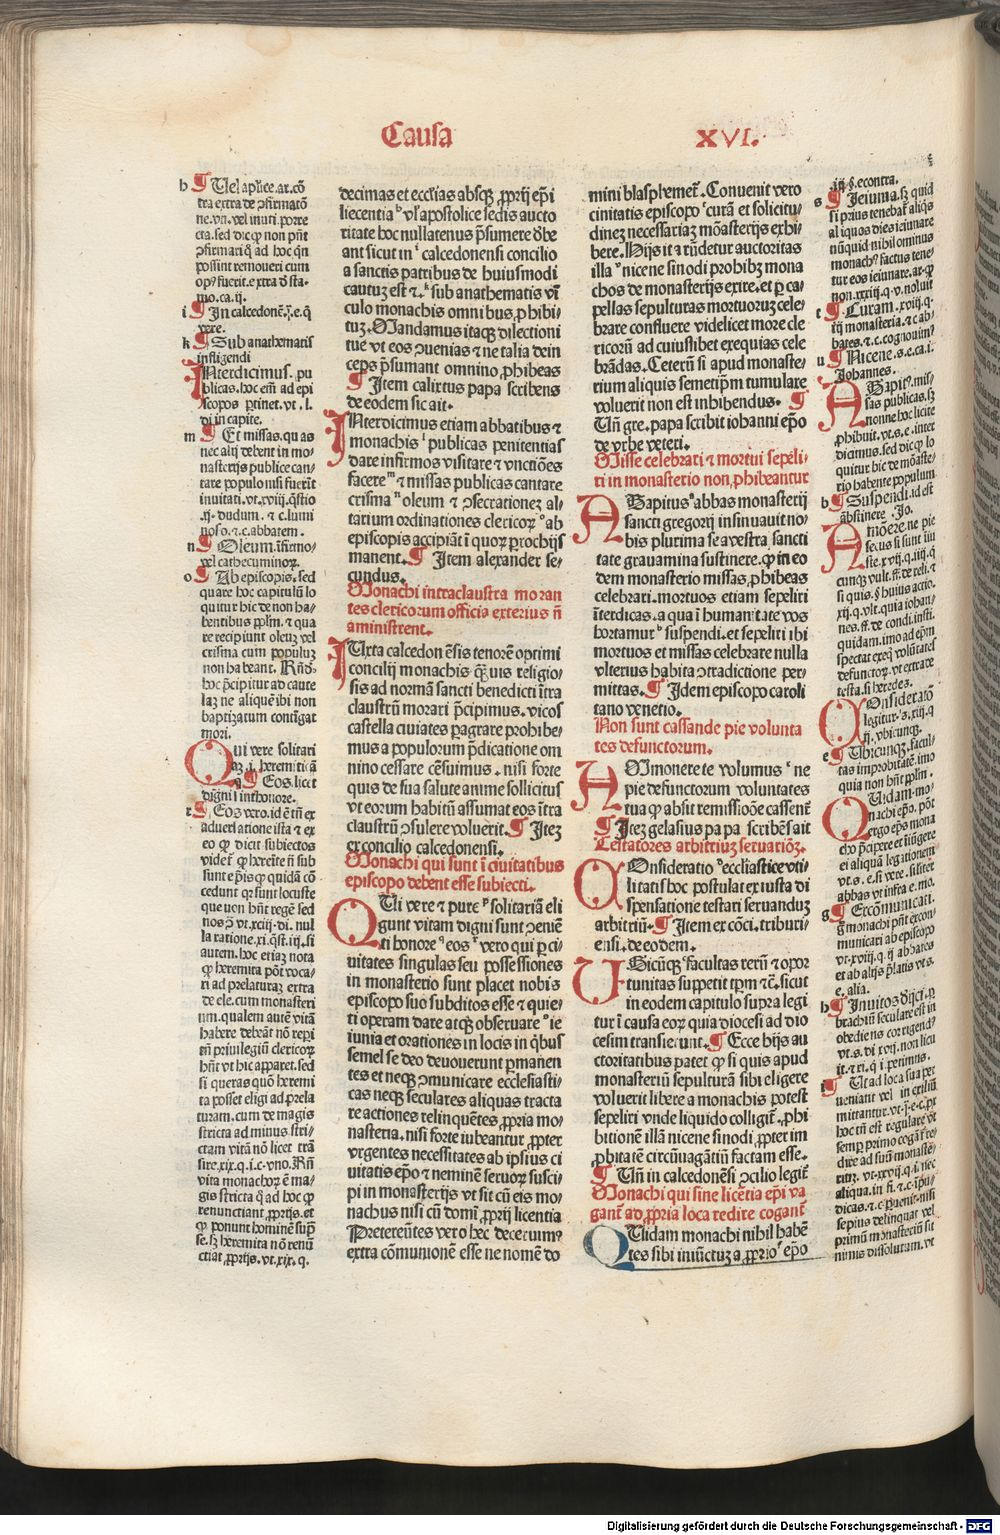 Causa
XVI.
b ¶ Uel aplice.ar.cõ
tra extra de ꝯfirmatõ
cta.sed dic ꝙ non pñt
possint remoueri cum
mo.ca.ij.
i ¶ In calcedonẽ.j.e.q̃
vere.
k ¶ Sub anathematis
infligendi
l INterdicimus. pu
blicas.hoc em̃ ad epi
scopos ꝑtinet.vt.j.
di in capite.
m ¶ Et missas.qu as
nec alij debent in mo-
nasterijs publice can-
tare populo nisi fuerĩt
inuitati.vt.xviij.q̃stio
.ij. dudum. ⁊ c.lumi
noso.⁊.c.abbatem.
n ¶ Oleum.ĩfirmo/
vel cathecuminoꝝ.
o ¶ Ab episcopis.sed
quare hoc capitulũ lo
quitur hic de non ha-
bentibus pplm.⁊ qua
re recipiunt oleuꝫ vel
crisma cum populuꝫ
non habeant. Rñdꝰ
hoc p̃cipitur ad caute
laꝫ ne aliquẽ ibi non
baptiꝫatum contĩgat
mori.
QUi vere solitari
aꝫ.i.heremiticã
q ¶ Eos.licet
digni sint honore.
r ¶ Eos vero.id ẽ tñ ex
aduersatione ista ⁊ ex
eo ꝙ dicit subiectos
videt̃ ꝙ heremite ñ sub
sunt ep̃is ꝙ quidã cõ
cedunt qꝛ sunt locuste
que non hñt regẽ sed
la ratione.xi.q̃st.iij.si
autem.hoc etiaꝫ nota
ꝙ heremita põt voca-
ri ad prelaturaꝫ extra
de ele.cum monasteri
um.qualem autẽ vitã
habere debeãt nõ reperi
tñ priuilegiũ clericoꝝ
hñt vt hic apparet.sed
si queras quõ heremi
ta posset eligi ad prela
turam.cum de magis
stricta ad minus stri/
ctam vitã nõ licet trã
sire.xix.q.i.c.vno.Rñ
vita monachoꝝ ẽ ma-
gis stricta q̃ ad hoc ꝙ
renunciant ꝓprijs.et
ꝙ ponunt hominẽ sup̃
se.sꝫ heremita nõ renũ
ciat ꝓprijs.vt.xix.q.
decimas et ecclias absqꝫ ꝓprij ep̃i
liecentia ᵇ vl̃ apostolice sedis aucto
ritate hoc nullatenus p̃sumere ð̃be
ant sicut in ⁱ calcedonensi concilio
a sanctis patribus de huiusmodi
cautuꝫ est ⁊.ᵏ sub anathematis vĩ
culo monachis omnibus ꝓhibi-
tuꝫ.Mandamus itaqꝫ dilectioni
tue vt eos ꝯuenias ⁊ ne talia dein
ceps p̃sumant omnino ꝓhibeas
¶ Item calixtus papa scribens
de eodem sic ait.
INterdicimus etiam abbatibus ⁊
monachis ˡ publicas penitentias
dare infirmos visitare ⁊ vnctiões
facere ᵐ ⁊ missas publicas cantare
crisma ⁿ oleum ⁊ ꝯsecrationeꝫ al-
tarium ordinationes clericoꝝ ᵒ ab
episcopis accipiãt ĩ quoꝝ ꝑrochijs
manent. ¶ Item alexander se-
cundus.
Monachi intraclaustra moran
tes clericorum officia exterius ñ
aministrent.
IUxta calcedon ẽsis tenorẽ optimi
concilij monachis q̃uis religio/
sis ad normã sancti benedicti ĩtra
claustrũ morari p̃cipimus.vicos
castella ciuiates ꝑagrare prohibe/
mus a populorum p̃dicatione om
nino cessare cẽsuimus. nisi forte
quis de sua salute anime sollicitus
vt eorum habitũ assumat eos ĩtra
claustrũ ꝯsulere voluerit. ¶ Iteꝫ
ex concilio calcedonensi.
Monachi qui sunt ĩ ciuitatibus
episcopo debent esse subiecti.
QUi vere ⁊ pure ᵖ solitariã eli
gunt vitam digni sunt ꝯueniẽ
ti honore ᑫ eos ʳ vero qui ꝑ ci-
uitates singulas seu possessiones
in monasterio sunt placet nobis
episcopo suo subditos esse ⁊ quie/
ti operam dare atqꝫ obseruare ˢ ie
iunia et orationes in locis in q̃bus
semel se deo deuouerunt ꝑmanen
tes et neqꝫ ꝯmunicare ecclesiasti-
cas neqꝫ seculares aliquas tracta
re actiones relinquẽtes ꝓpria mo/
nasteria.nisi forte iubeantur ꝓpter
vrgentes necessitates ab ipsius ci
uitatis ep̃o ⁊ neminẽ seruoꝝ susci-
pi in monasterijs vt sit cũ eis mo/
nachus nisi cũ domĩ ꝓprij licentia
Pretereũtes vero hec decretum
extra cõmunionẽ esse ne nomẽ do
mini blasphemet̃. Conuenit vero
ciuitatis episcopo ᵗ curã et solicitu/
dineꝫ necessariaꝫ mõasterijs exhi/
bere. Hijs ita rñdetur auctoritas
illa ᵘ nicene sinodi prohibꝫ mona
chos de monasterijs exire.et ꝑ ca-
pellas sepulturas mortuoruꝫ cele/
brare confluere videlicet more cle
ricorũ ad cuiuslibet exequias cele
brãdas. Ceterũ si apud monaste/
rium aliquis semetip̃m tumulare
voluerit non est inhibendus. ¶
Uñ gre. papa scribit iohanni ep̃o
de vrbe veteri.
Misse celebrari ⁊ mortui sepeli-
ri in monasterio non ꝓhibeantur
AGapitus ᵃ abbas monasterij
sancti gregorij insinuauit no/
bis plurima se a vestra sancti
tate grauamina sustinere. ꝙ in eo
dem monasterio missas ꝓhibeas
celebrari.mortuos etiam sepeliri
ĩterdicas.a qua ĩ humanitate vos
hortamur ᵇ suspendi.et sepeliri ibi
mortuos et missas celebrare nulla
vlterius habita ꝯtradictione per-
mittas. ¶ Idem episcopo catoli
tano venetio.
Non sunt cassande pie volunta
tes defunctorum.
ADmonere te volumus ᶜ ne
pie defunctorum voluntates
tua ꝙ absit remissioõe cassent̃
¶ Iteꝫ gelasius papa scribẽs ait
Testatores arbitriuꝫ seruatioꝫ.
COnsideratio ᵈ ecclĩastice vti/
litatis hoc postulat ex iusta di
spensatione testari seruanduꝫ
arbitriũ. ¶ Item ex cõci.triburi/
ensi.de eodem.
UBicũqꝫ ᵉ facultas rerũ ⁊ opor
tunitas suppetit tꝑm ⁊c̃.sicut
in eodem capitulo supra legi
tur ĩ causa eoꝝ quia diocesi ad dio
cesim transierunt. ¶ Ecce hijs au
ctoritatibus patet ꝙ si quis apud
monasteriũ sepulturã sibi eligere
voluerit libere a monachis potest
sepeliri vnde liquido colligit̃ ꝓhi
bitionẽ illã nicene sinodi ꝓpter im
ꝓbitatẽ circũuagãtiũ factam esse.
¶ Uñ in calcedonẽsi ꝯcilio legit̃
Monachi qui sine licẽtia ep̃i va
gant̃ ad ꝓpria loca redire cogant̃
QUidam monachi nihil habẽ
tes sibi iniũctuꝫ a ꝓprio ᶠ ep̃o
iij §.econtra.
s ¶ Ieiunia.sꝫ quid
si prius tenebat̃ aliq̃s
aliquos dies ieiunare
nũquid nihilominus
monachꝰ factus tene/
tur eos ieiunare.ar.ꝙ
non.xxxiij.q.v.noluit
t ¶ Curam.xviij.q.
ij.monasteria.⁊ c.ab/
bates.⁊.c.cognouimꝰ
u ¶ Nicene.s.e.ca.i.
Johannes.
AGapitꝰ.mis/
sas publicas.sꝫ
nonne hoc licite
ꝓhibuit.vt.s.e.inter
dicimus.sed dic ꝙ lo
quitur hic de mõaste/
rio habente populum
b ¶ Suspendi.id est
abstinere .Jo.
ADmõere.ne pie
secus si sunt im
pie.xvij.q.iiij.q
si quis.§ huius actio.
xij.q.vlt.quia iohan/
nes.ff.de condi.insti.
quidam.imo ad ep̃m
spectat exeq̃ volũtates
defunctoꝝ.vt extra de
testa.si heredes.
COnsideratõ
legitur.s.xiij.q
ij.vbicunqꝫ.
e ¶ Ubicunqꝫ.facul/
tas improbitatẽ.imo
quia non hñt pplm.
QUidam.mo/
nachi ep̃o.põt
ergo ep̃s mona
cho p̃cipere et iniũgere
ei aliquã legationem
vt.s.e.si vere.similiter
abbas vt infra e.mo.
g ¶ Excõmunicati.
g monachi pñt excom
municari ab episcopo
vt.xviij.q.ij abbates
et ab alijs p̃latis vt.s.
e.alia.
h ¶ Inuitos ð̃ijci.ꝑ
brachiũ seculare est in
obediens corrigendꝰ
vt.s.di xvij.non licu
it.⁊.xi.q i petimus.
i ¶ Ut ad loca sua per
ueniant vel in exiliũ
mittantur.vt.j.e.c.ꝓx
hoc tñ est regulare vt
semꝑ primo cogãt̃ re/
dire ad suũ monaste/
riuꝫ. vt.xxvij.q.i.nec
aliqua.in fi.⁊.c.ĩpu/
dicas.⁊.c.ꝑuenit.nisi
sepius delinquat vel
primũ mõasteriũ sit
nimis dissolutum.vt
Digitalisierung gefördert durch die Deutsche Forschungsgemeinschaft - DFG